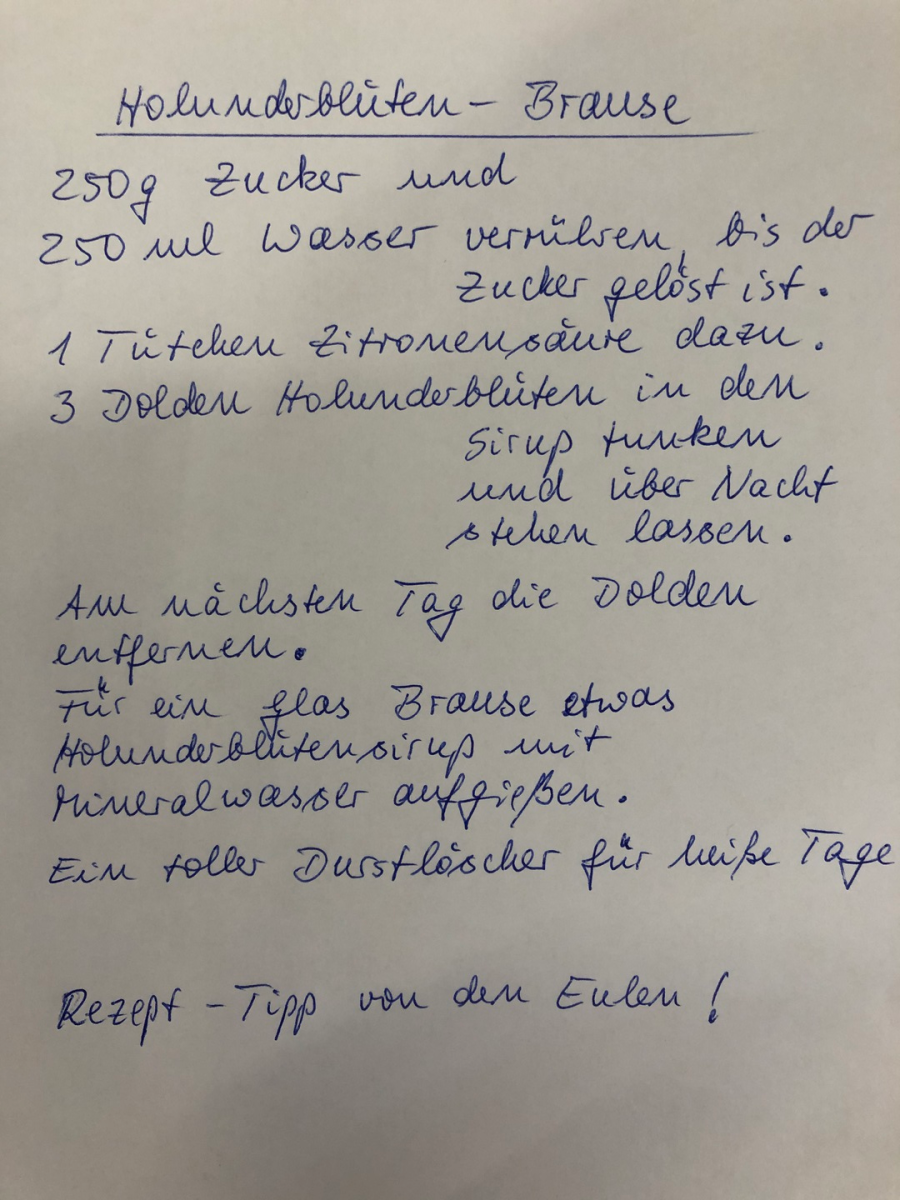 Holunderblüten - Brause
250g Zucker und
250 ml Wasser verrühren, bis der
Zucker gelöst ist.
1 Tütchen Zitronensäure dazu.
3 Dolden Holunderblüten in den
Sirup tunken
und über Nacht
stehen lassen.
Am nächsten Tag die Dolden
entfernen.
Für ein Glas Brause etwas
Holunderblütensirup mit
Mineralwasser aufgießen.
Ein toller Durstlöscher für heiße Tage
Rezept - Tipp von den Eulen!